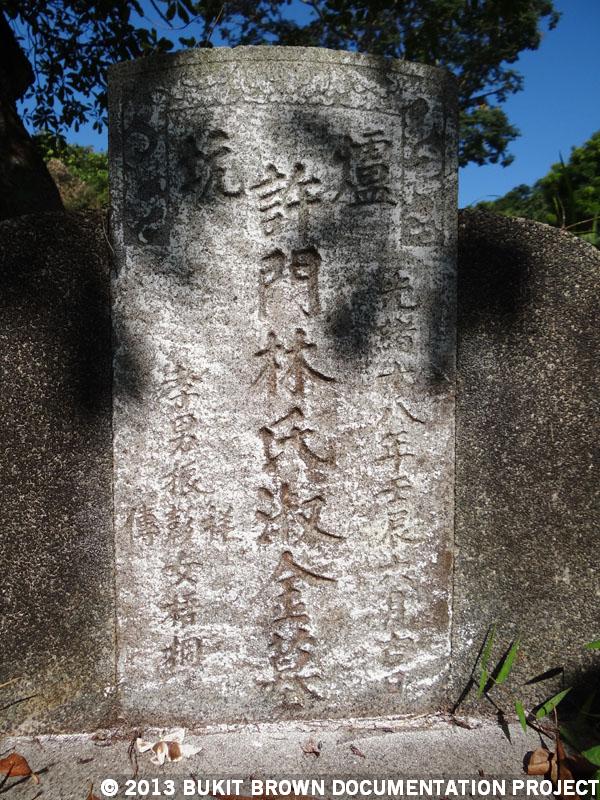 爐坑
光緒十八年壬辰六月吉日
許門林氏淑金墓
祥
孝男振彭女桐
傳
© 2013 BUKIT BROWN DOCUMENTATION PROJECT